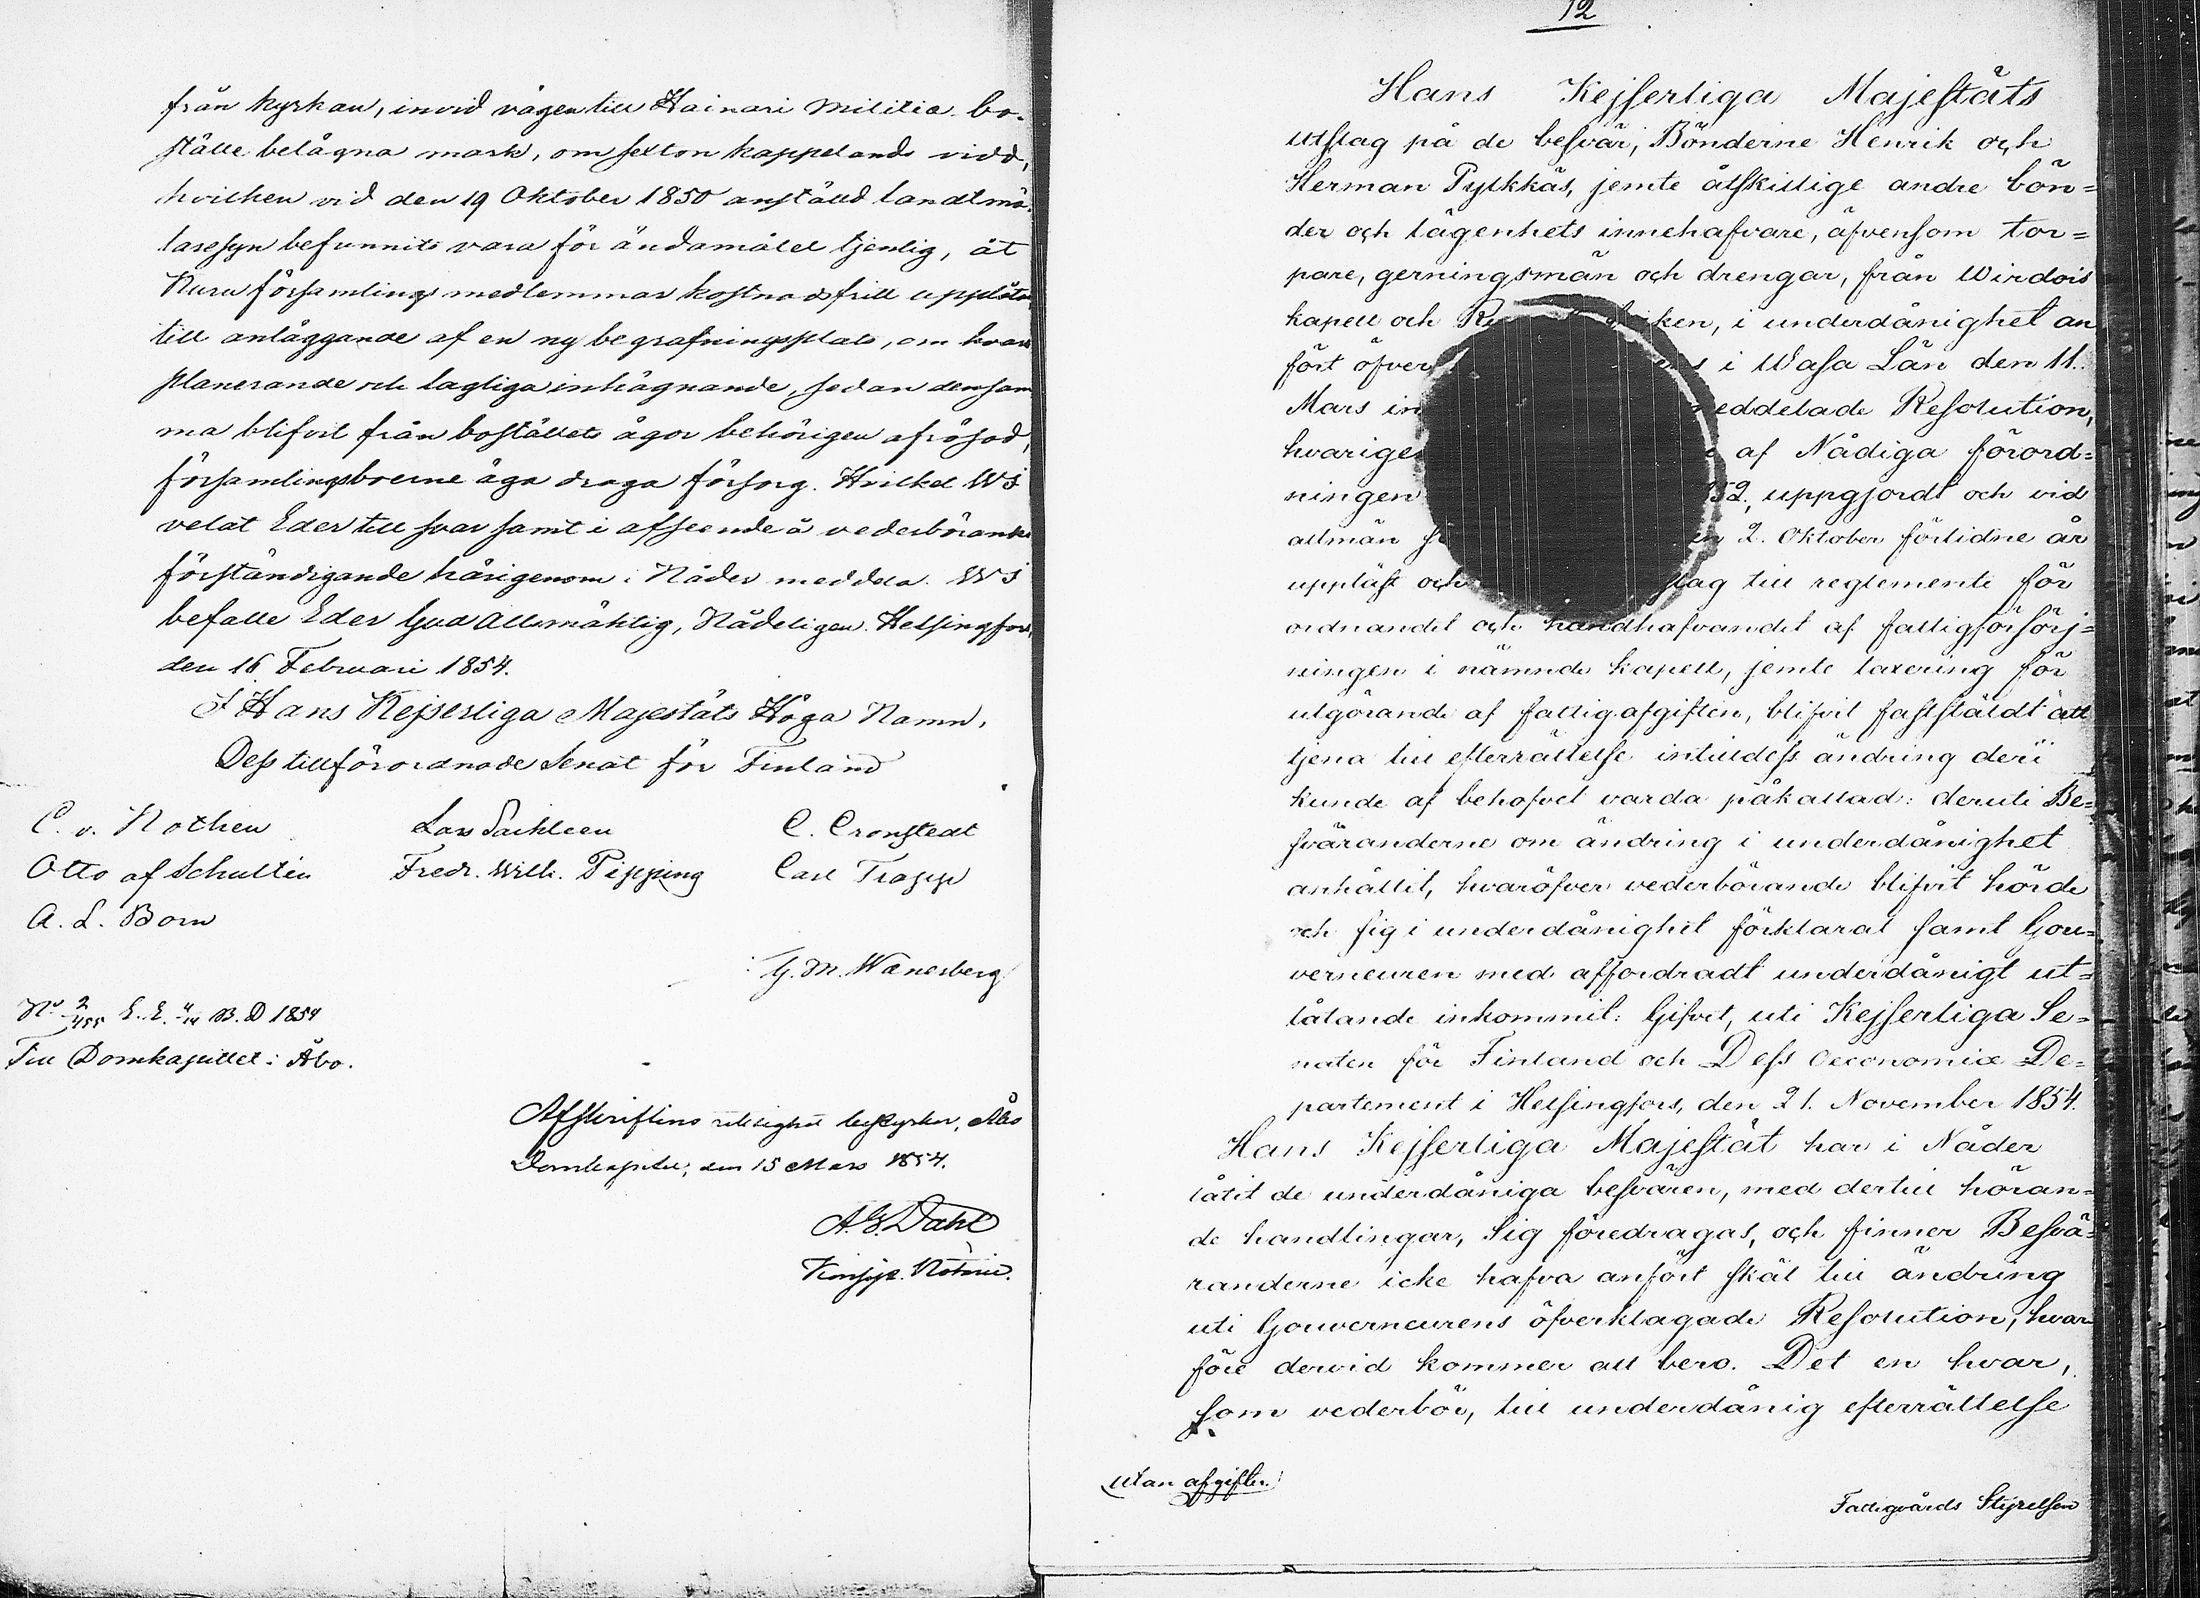 från kyrkan, invid vägen till Hainari Militiæ bo-
ställe belägna mark, om sexton kappelands vidd,
hvilken vid den 19 Oktober 1850 anställd landtmä-
taresyn befunnits vara för ändamålet tjenlig, åt
Kuru församlings medlemmar kostnadsfritt upplåtes
till anläggande af en ny begrafningsplats, om hvars
planerande och lagliga inhägnande, sedan densam-
ma blifvit från boställets ägor behörigen afrösad,
församlingsboerne äga draga försorg. Hvilket Wi
velat Eder till svar samt i afseende å vederbörandes
förständigande härigenom i Nåder meddela. Wi
befalle Eder Gud Allsmäktig, Nådeligen. Helsingfors,
den 16 Februari 1854.
I Hans Kejserliga Majestäts Höga Namn,
Dess tillförordnade Senat för Finland
C. v. Kothen Lars Sackleen C. Cronstedt
Otto af Schultén Fredr. Wilh. Pipping Carl Trapp
A. L. Born
G. M. Wænerberg
No 2/455 E. E. 4/14 B. D 1854
Till Domkapitlet i Åbo.
Afskriftens riktighet bestyrker, Åbo
Domkapitel, den 15 Mars 1854.
A. G. Dahl
Konsist. Notarie.
12
Hans Kejserliga Majestäts
utslag på de besvär, Bönderne Henrik och
Herman Pylkkäs, jemte åtskillige andre bön=
der och lägenhets innehafvare, äfvensom tor=
pare, gerningsmän och drengar, från Wirdois
kapell och i underdånighet an
fört öfver i Wasa Län den 11.
Mars meddelade Resolution,
af Nådiga förord=
ningen uppgjordt och vid
allmän 2. Oktober förlidne år
uppläst och till reglemente för
ordnandet och handhafvandet af fattigförsörj=
ningen i nämnde kapell, jemte taxering för
utgörande af fattigafgiften, blifvit fastställdt att
tjena till efterrättelse intilldess ändring deri
kunde af behofvet varda påkallad: deruti Be=
sväranderne om ändring i underdånighet
anhållit, hvaröfver vederbörande blifvit hörde
och sig i underdånighet förklarat samt Gou=
verneuren med affordradt underdånigt ut=
låtande inkommit: Gifvet, uti Kejserliga Se=
naten för Finland och Dess Oeconomiæ De=
partement i Helsingfors, den 21. November 1854.
Hans Kejserliga Majestät har i Nåder
låtit de underdåniga besvären, med dertill höran=
de handlingar, Sig föredragas, och finner Besvä=
randerne icke hafva anfört skäl till ändring
uti Gouverneurens öfverklagade Resolution, hvar
före dervid kommer att bero. Det en hvar,
som vederbör, till underdånig efterrättelse
Utan afgifter.
Fattigvårds Styrelsen